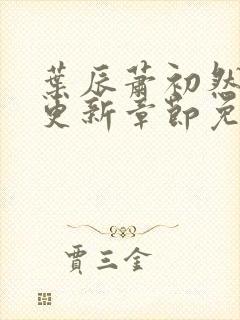 葉辰蕭初然
更新章節免
賈三金